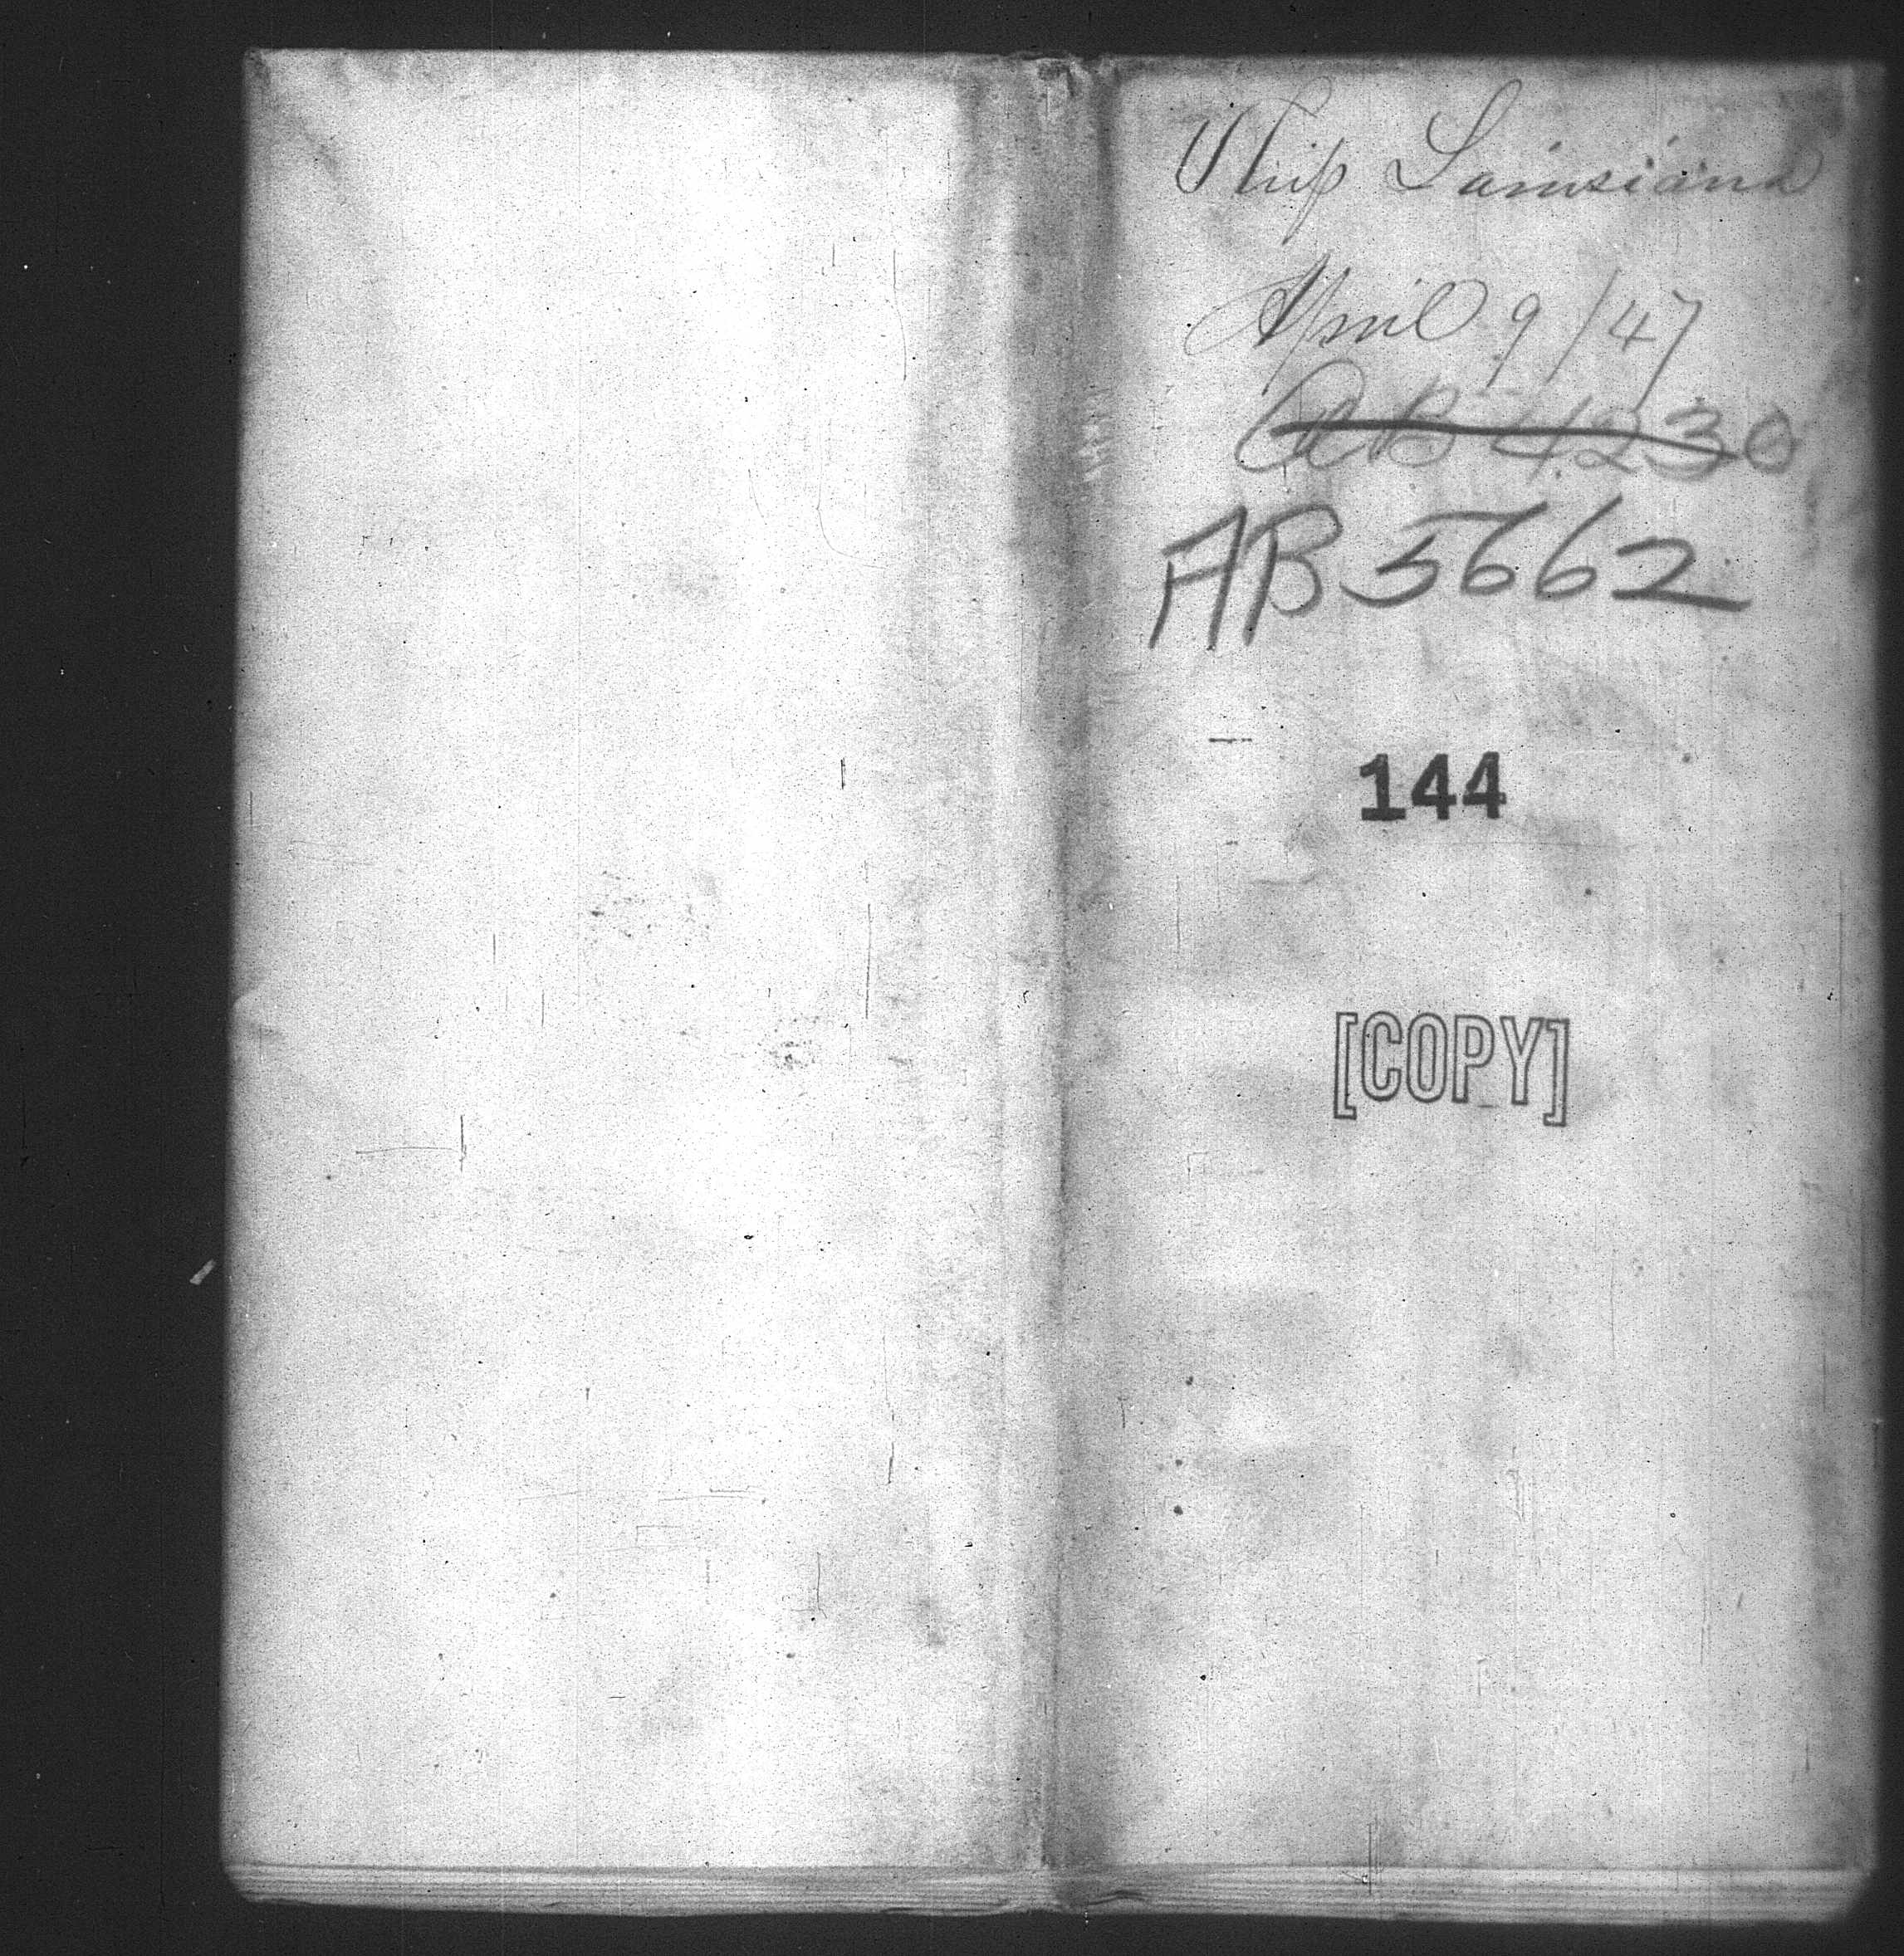 Ship Louisiana
April 9/47
AB 4230
AB 5662
144
[COPY]